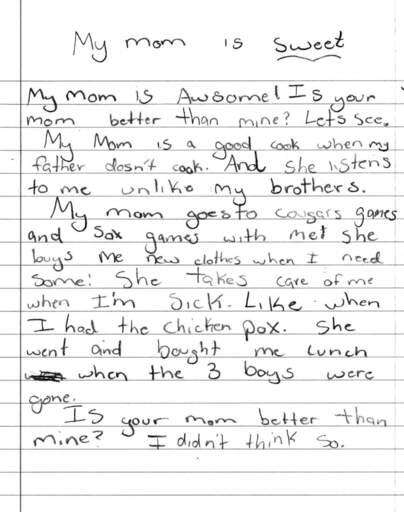 My mom is sweet
My Mom is Awsome! Is your
mom better than mine? Let's see.
My Mom is a good cook when my
father dosn't cook. And she listens
to me unlike my brothers.
My mom goes to cougars games
and Sox games with me! She
buys me new clothes when I need
some! She takes care of me
when I'm sick. Like when
I had the chicken pox. She
went and bought me lunch
when the 3 boys were
gone.
Is your mom better than
mine? I didn't think so.